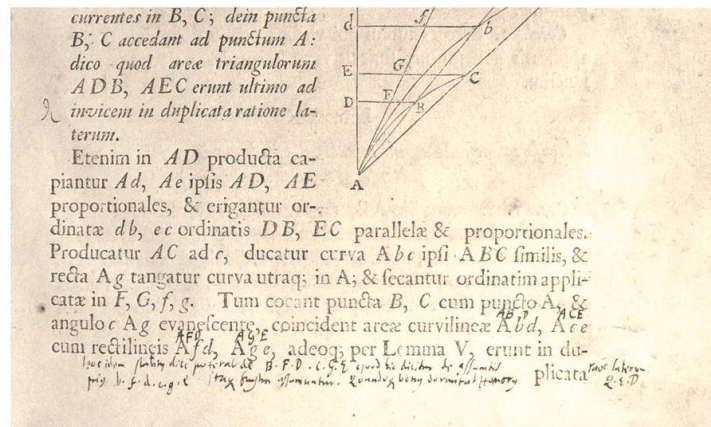 currentes in B, C; dein puncta
B, C accedant ad punctum A:
dico quod areæ triangulorum
ADB, AEC erunt ultimo ad
invicem in duplicata ratione la-
terum.
Etenim in AD producta ca-
piantur Ad, Ae ipſis AD, AE
proportionales, & erigantur or-
dinatæ db, ec ordinatis DB, EC parallelæ & proportionales.
Producatur AC ad c, ducatur curva Abc ipſi ABC ſimilis, &
recta Ag tangatur curva utraq; in A; & ſecantur ordinatim appli-
catæ in F, G, f, g. Tum coeant puncta B, C cum puncto A, &
angulo c Ag evaneſcente, coincident areæ curvilineæ Abd, Ace
cum rectilineis Afd, Age, adeoq; per Lemma V, erunt in du-
plicata
f
d
b
E
G
C
D
F
B
A
ABD
ACE
AFD
AGE
B. F. D. C. G. E
b. f. d. c. g. e
Q. E. D